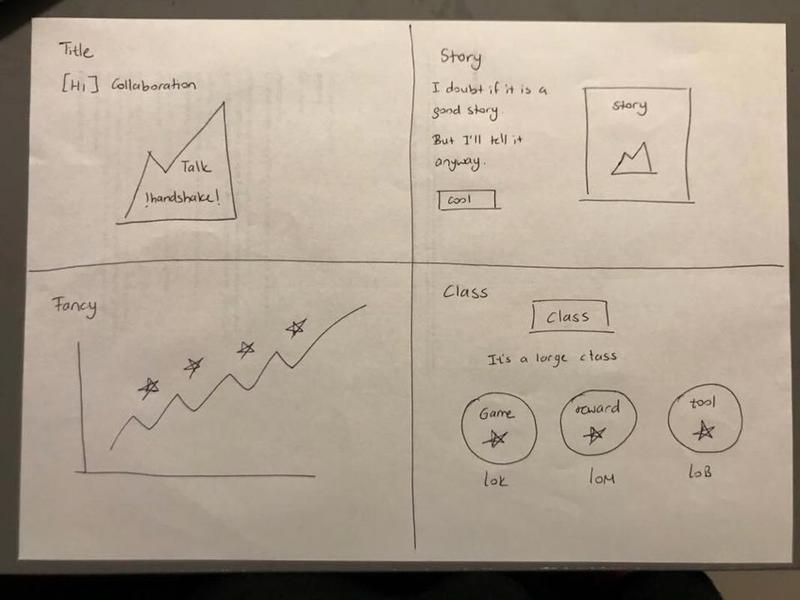 Title
[Hi] Collaboration
Talk
!handshake!
Story
I doubt if it is a
good story.
But I'll tell it
anyway.
cool
story
Fancy
Class
Class
It's a large class
Game
reward
tool
10K
10M
10B